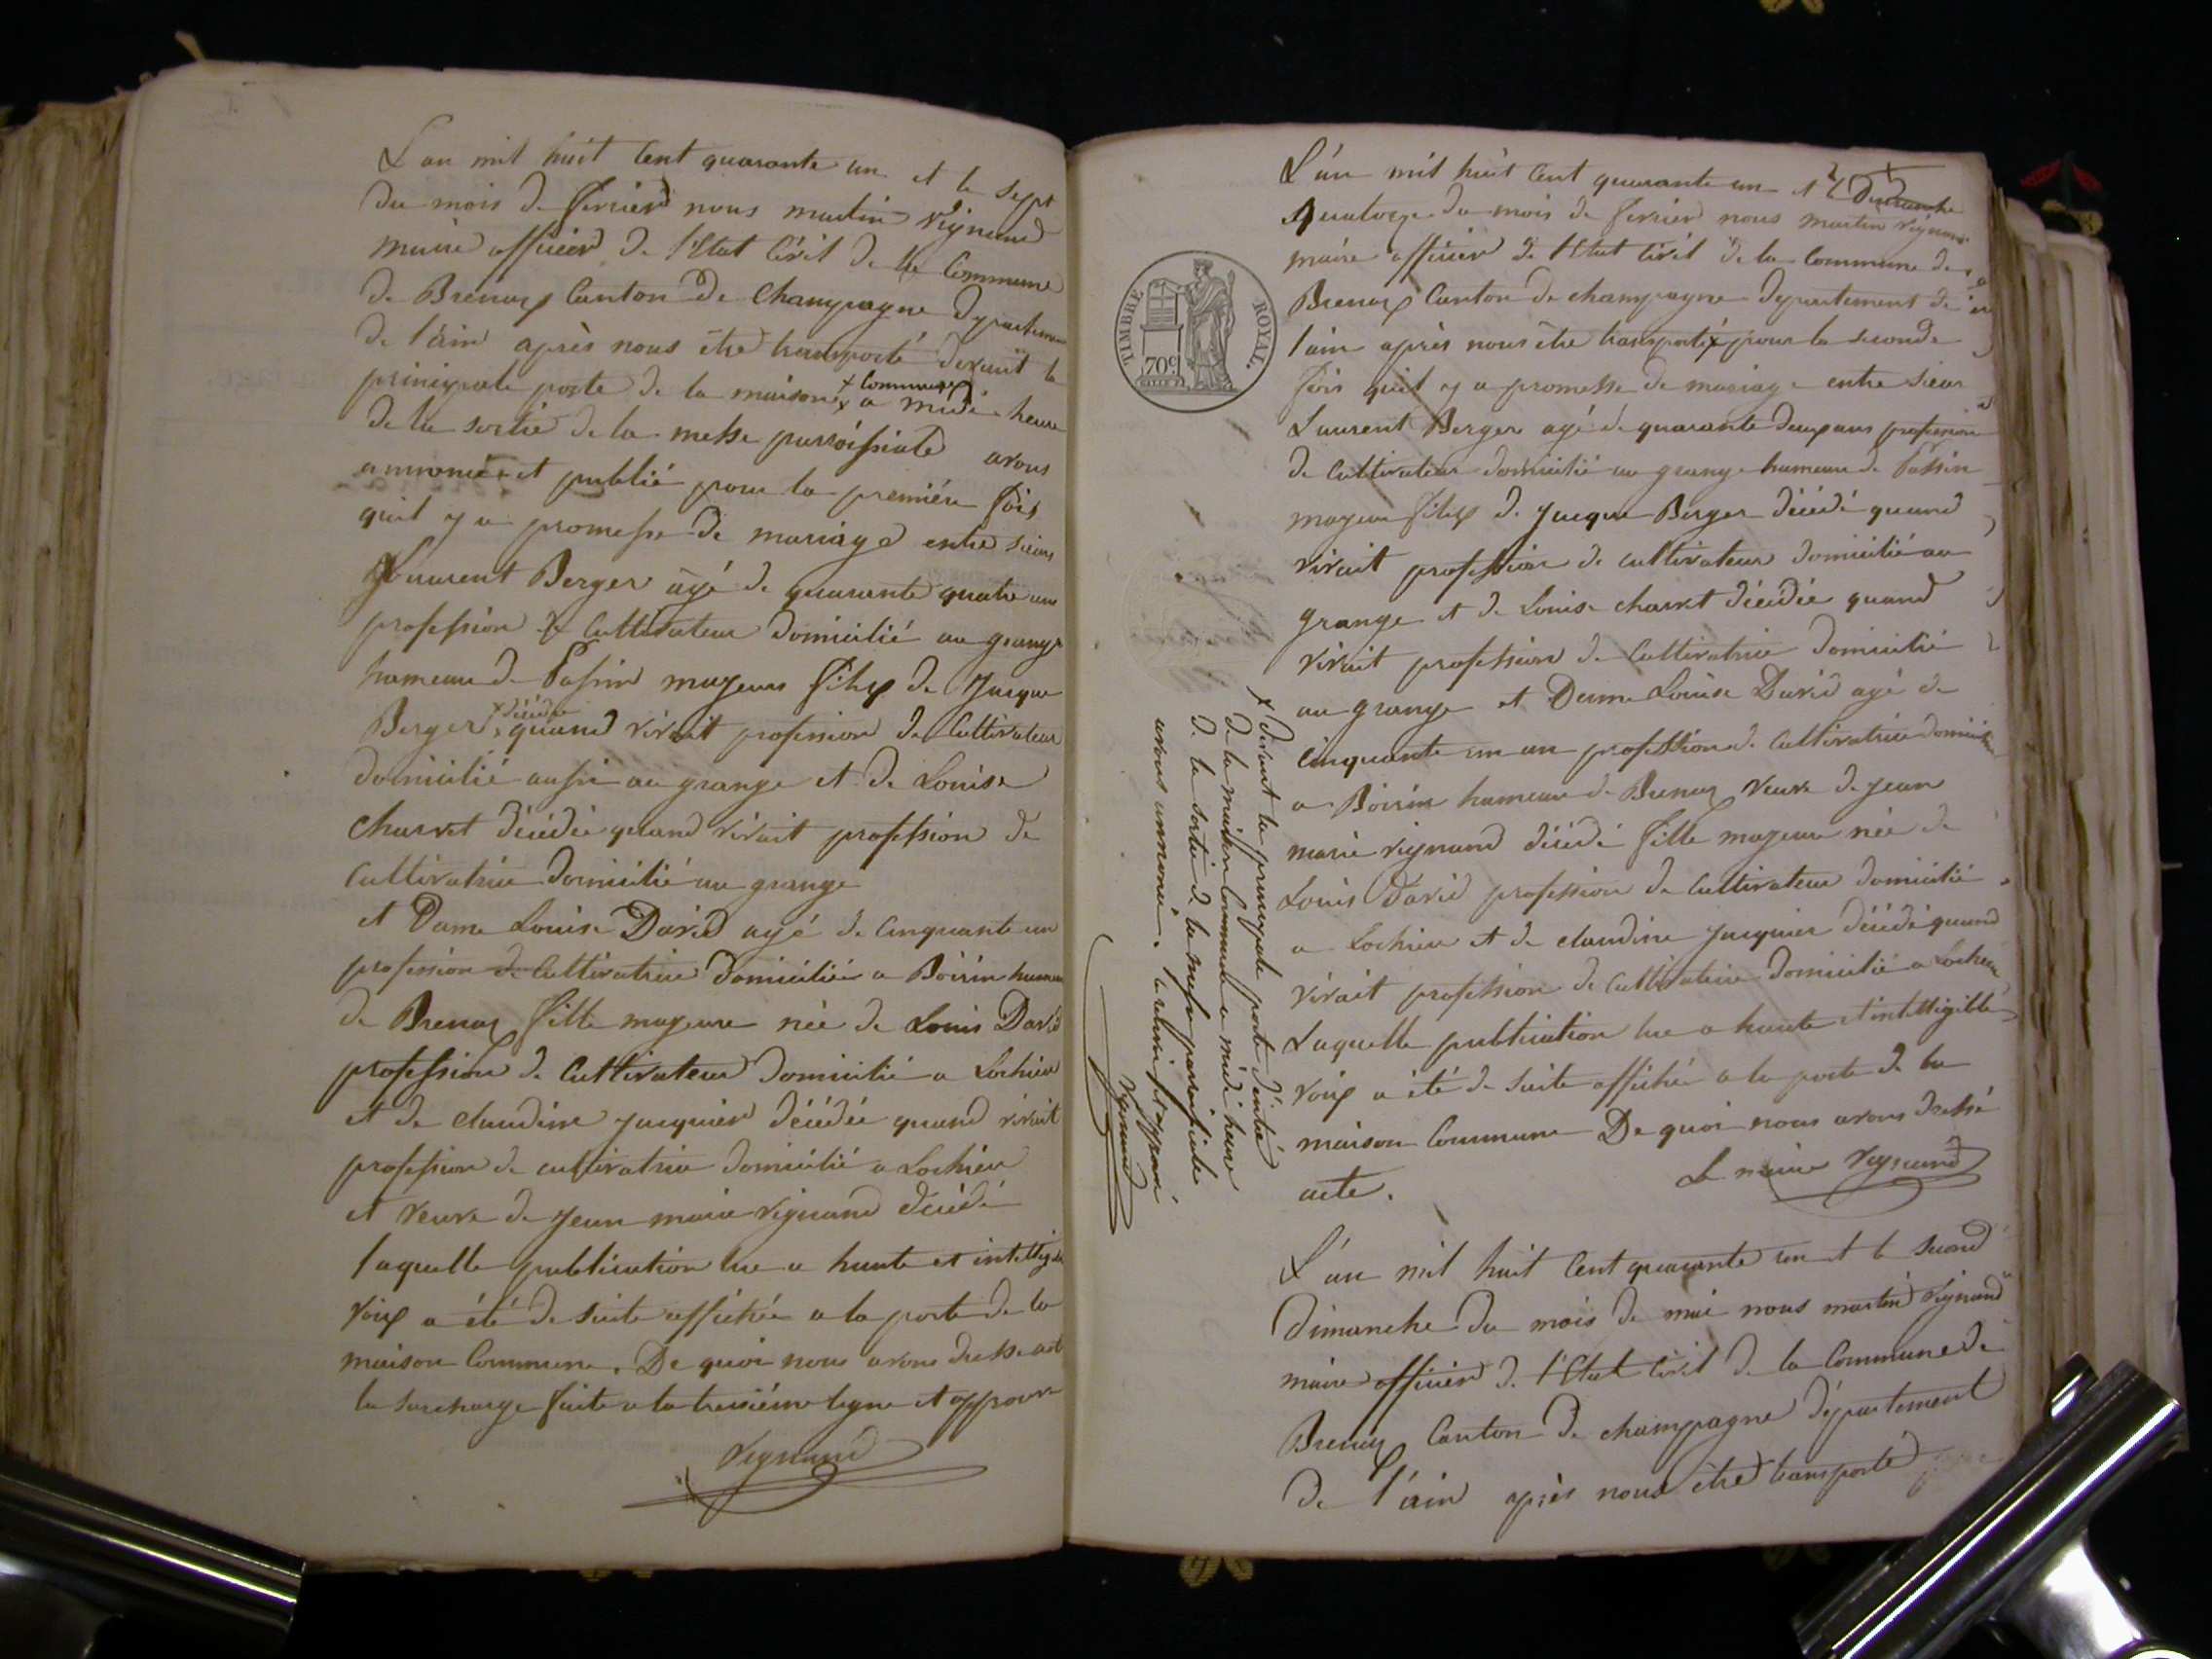 L'an mil huit cent quarante un et le sept
du mois de fevrier nous martin Vignand
maire officier de l'Etat Civil de la Commune
de Brenaz Canton de Champagne Departement
de l'ain après nous être transporté devant la
principale porte de la maison x Commune x a midi heure
de la sortie de la messe parroissiale avons
annoncé et publié pour la premiére fois
quil y a promesse de mariage entre sieur
Laurent Berger âgé de quarante quatre ans
profession de Cultivateur Domicilié au grange
hameau de Passin majeur filx de Jacque
Berger x décédé quand vivait profession de Cultivateur
domicilié aussi au grange et de Louise
Charvet décédée quand vivait profession de
Cultivatrice domicilié au grange
et Dame Louise David agé de Cinquante un
profession de Cultivatrice domiciliée a Boirin hameau
de Brenaz fille majeure née de Louis David
profession de Cultivateur domicilié a Lochieu
et de claudine jacquier décédée quand vivait
profession de cultivatrice domicilié a Lochieu
et veuve de jean marie vignand décédé
laquelle publication lue a haute et intelligible
voix a été de suite affichée a la porte de la
maison Commune. De quoi nous avons dressé acte
la surcharge faite a la treisiéme ligne et approuvé
Vignand
L'an mil huit cent quarante un et le Dimanche
quatorze du mois de fevrier nous martin vignand
maire officier de l'Etat Civil de la Commune de
Brenaz Canton de champagne departement de
TIMBRE ROYAL.
70c
l'ain après nous être transporté x pour la seconde
fois quil y a promesse de mariage entre sieur
Laurent Berger agé de quarante deux ans profession
de Cultivateur domicilié au grange hameau de Passin
majeur filx de jacque Berger décédé quand
vivait profession de cultivateur domicilié au
grange et de Louise charvet décédée quand
vivait profession de Cultivatrice domicilié
au grange et Dame Louise David agé de
Cinquante un an profession de Cultivatrice domiciliée
a Boirin hameau de Brenaz veuve de jean
marie vignand décédé fille majeure née de
Louis David profession de Cultivateur domicilié
a Lochieu et de claudine jacquier décédé quand
vivait profession de Cultivatrice domicilié a Lochieu
Laquelle publication lue a haute et intelligible
voix a été de suite affichée a la porte de la
maison Commune De quoi nous avons dressé
acte. Le maire Vignand
x devant la principale porte d'entré
de la maison Commune a midi heure
de la sortie de la messe parroissiale
avons annoncé.
Vignand
L'an mil huit cent quarante un et le second
dimanche du mois de mai nous martin Vignand
maire officier de l'Etat Civil de la Commune de
Brenaz Canton de champagne département
de l'ain après nous être transporté